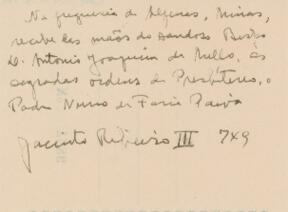 Na freguesia de Alfenas, Minas,
recebe das mãos do bondoso Bispo
D. Antonio Joaquim de Mello, as
sagradas ordens de Presbítero, o
Padre Nuno de Faria Paiva
Jacintho Ribeiro III 7x9